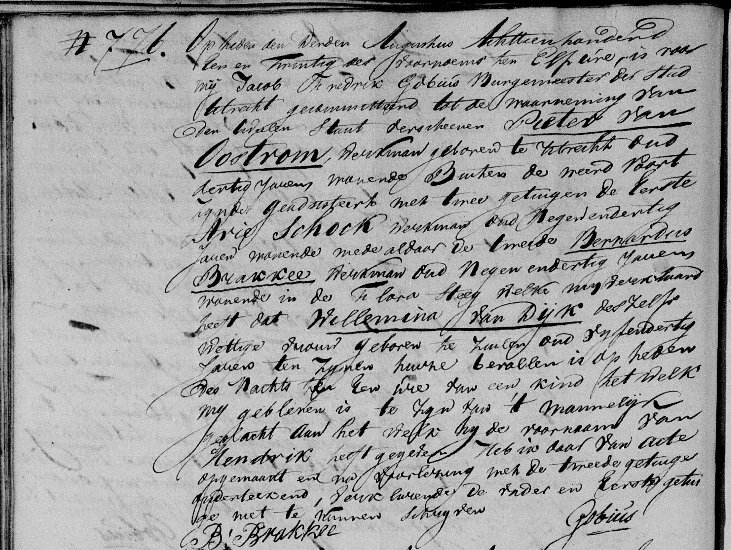 # 776.
Op heden den derden Augustus Achttien honderd
een en twintig des voormiddags ten Elf ure, is voor
mij Jacob Fredrik Gobius Burgemeester der Stad
Utrecht gecommitteerd tot de waarneming van
den Civielen Staat verscheenen Pieter van
Oostrom, Werkman geboren te Utrecht oud
dertig Jaren wonende Buiten de weerd Poort
zijnde geadsisteerd met twee getuigen de Eerste
Arie Schock Werkman oud Negenendertig
Jaren wonende mede aldaar de tweede Bernardus
Brakkee Werkman oud Negenendertig Jaren
wonende in de Flora Steeg welke mij verklaard
heeft dat Willemina van Dijk deszelfs
Wettige vrouw geboren te Zuilen oud vijfendertig
Jaren ten zijnen huize bevallen is op heden
des Nachts ten Een ure van een kind het welk
mij gebleken is te zijn van 't mannelijk
geslacht aan het welk hij de voornaam van
Hendrik heeft gegeven. Heb ik daar van acte
opgemaakt en na voorlezing met de tweede getuige
onderteekend, verklarende de vader en Eerste getui
ge niet te kunnen schryven
B: Brakkee Gobius